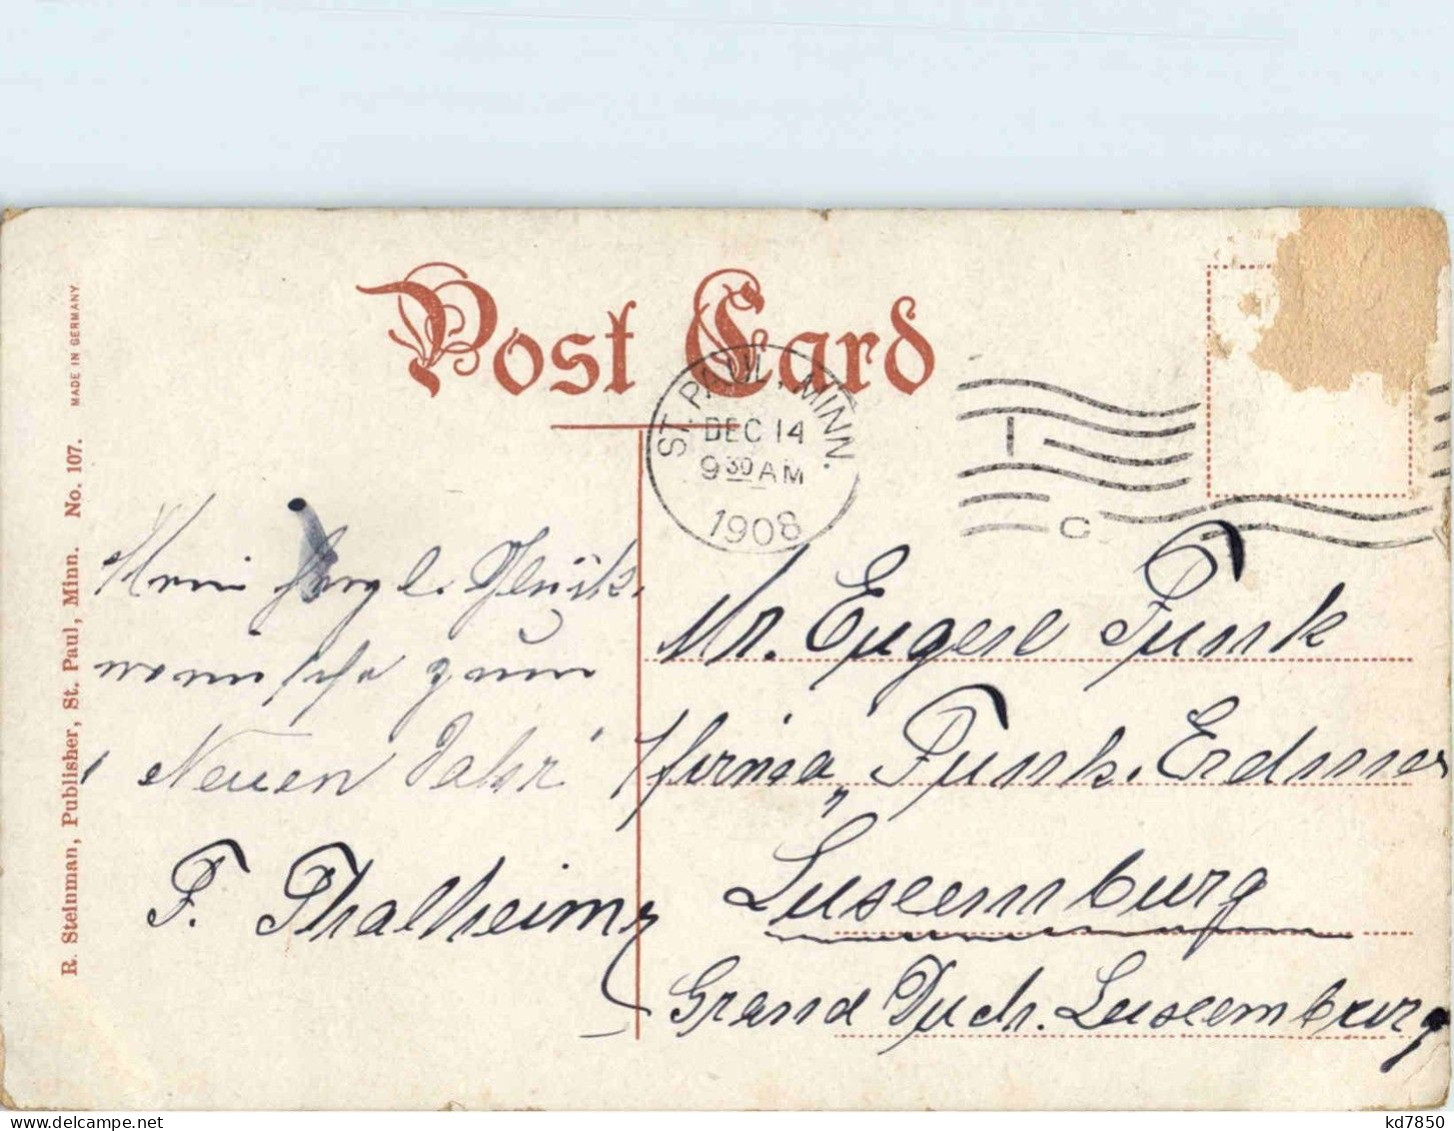 Post Card
MADE IN GERMANY.
R. Steinman, Publisher, St. Paul, Minn. No. 107.
ST. PAUL, MINN.
DEC 14
9 30 AM
1908
1
C
herzl. Glück
wünsche zum
Neuen Jahr
F. Thalheimer
Mr. Eugene Funk
firma Funk.
Luxemburg
Grand Duch. Luxemburg
kd7850